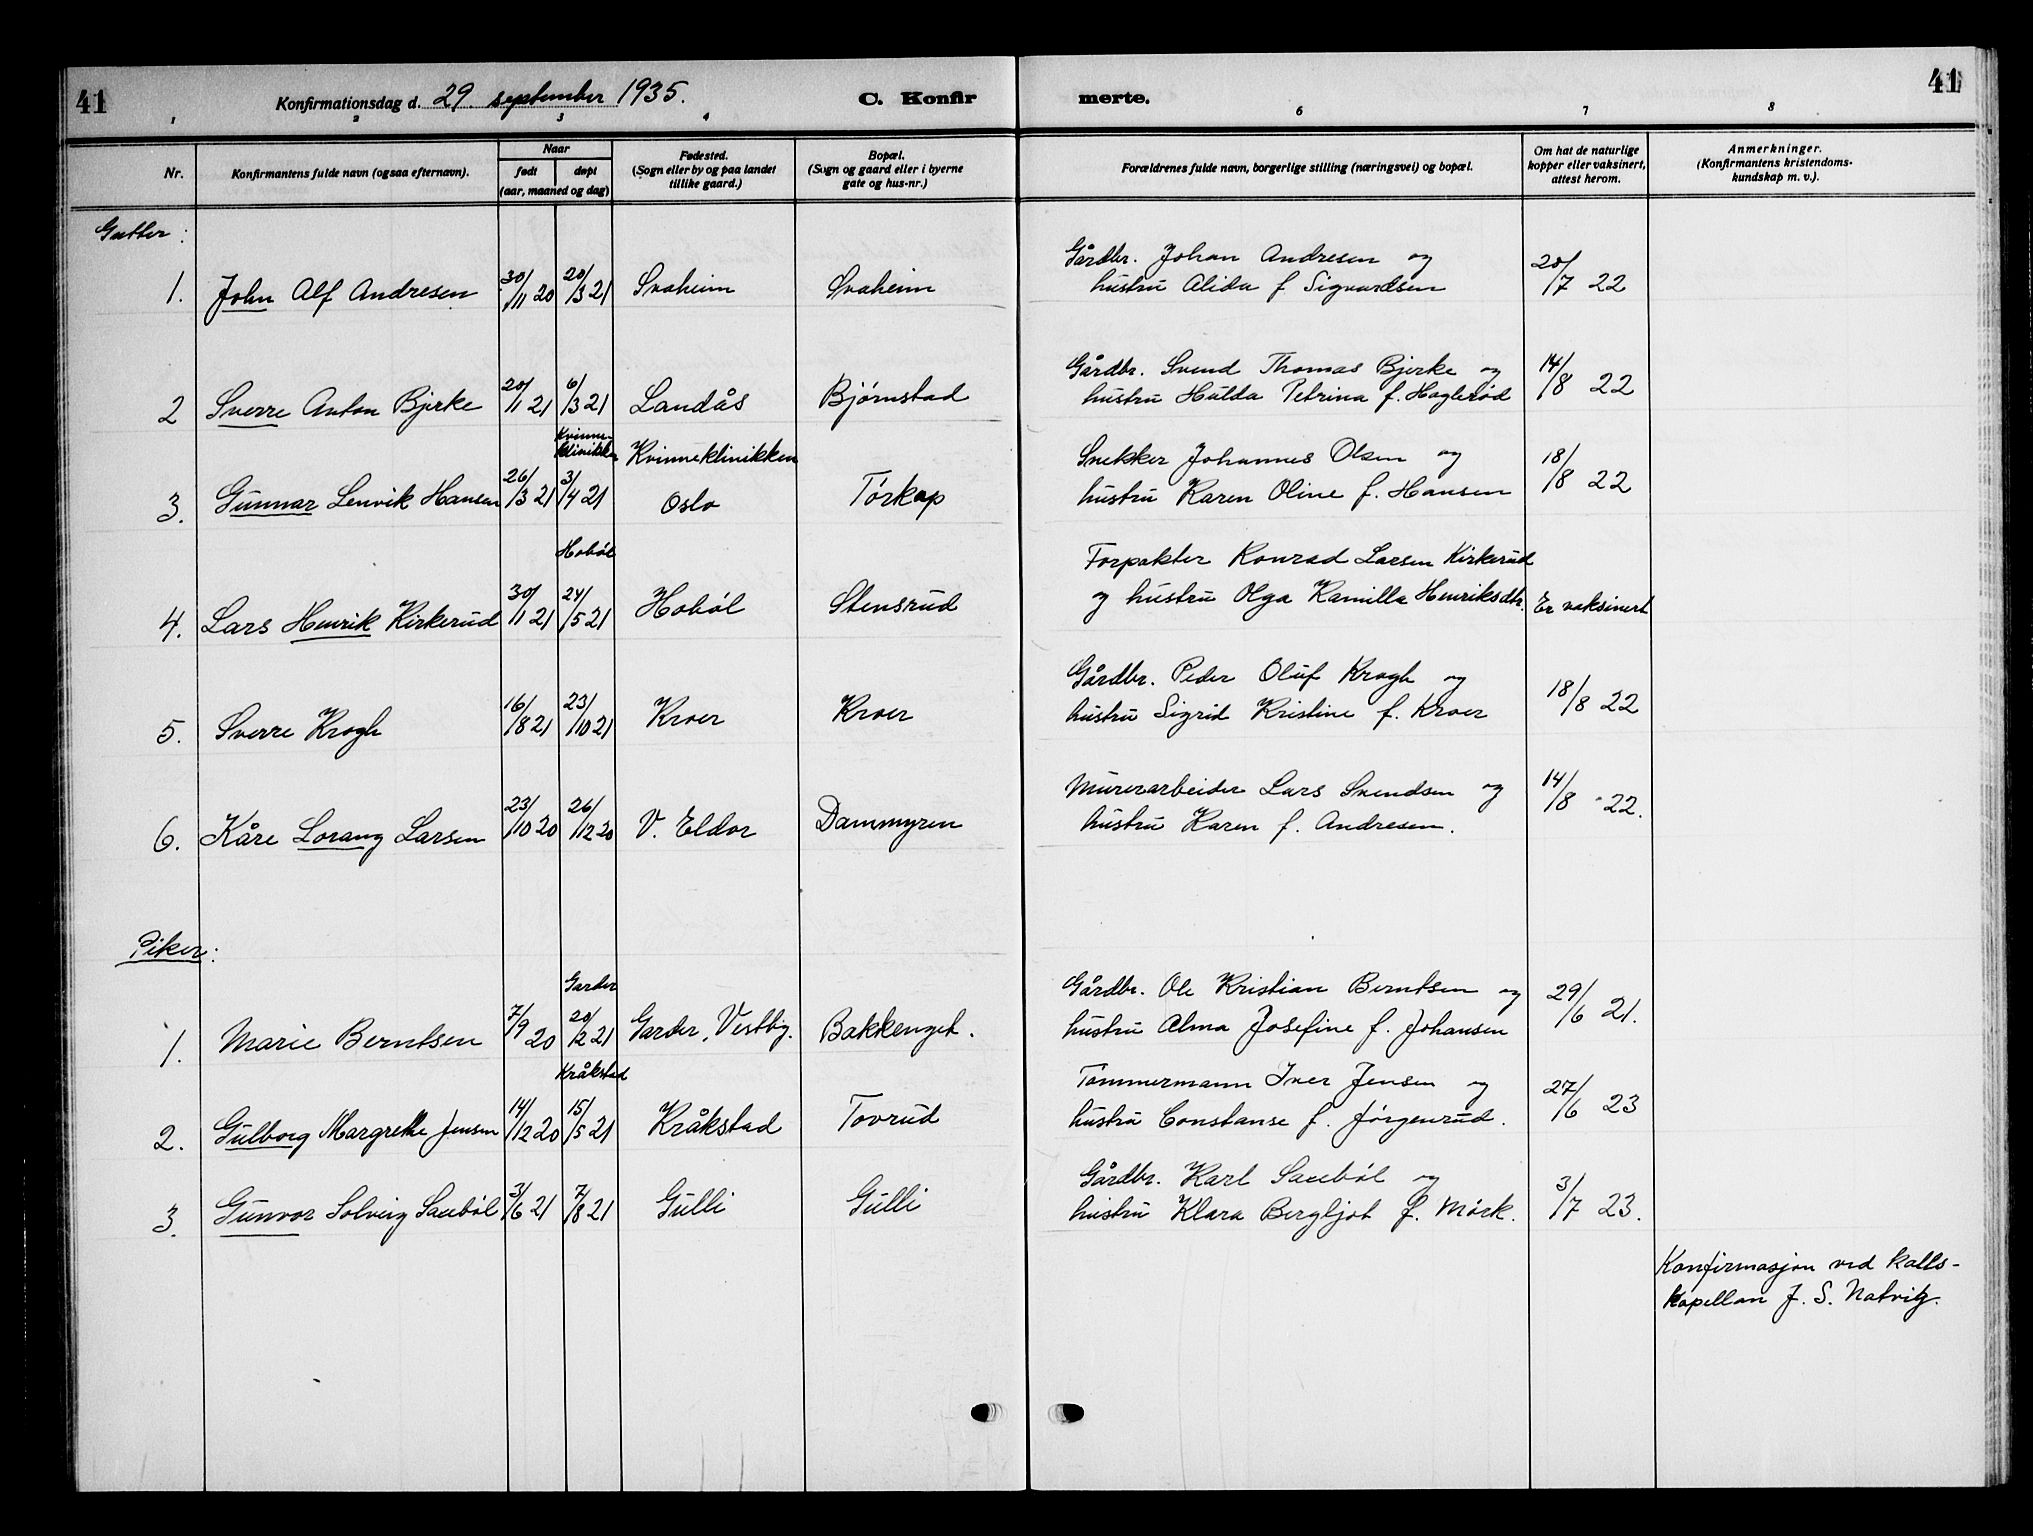 41
Konfirmationsdag d. 29. september 1935.
C. Konfirmerte.
41
1 2 3 4 6 7 8
Nr.
Konfirmantens fulde navn (ogsaa efternavn).
Naar
født døpt
(aar, maaned og dag)
Fødested.
(Sogn eller by og paa landet
tillike gaard.)
Bopæl.
(Sogn og gaard eller i byerne
gate og hus-nr.)
Forældrenes fulde navn, borgerlige stilling (næringsvei) og bopæl.
Om hat de naturlige
kopper eller vaksinert,
attest herom.
Anmerkninger.
(Konfirmantens kristendoms-
kundskap m. v.).
Gutter:
1. John Alf Andresen 30/11 20 20/3 21 Svaheim Svaheim
Gårdbr. Johan Andresen og
hustru Alida f Sigvardsen
20/7 22
2 Sverre Anton Bjerke 20/11 21 6/3 21 Landås Bjørnstad
Gårdbr. Svend Thomas Bjerke og
hustru Hulda Petrina f. Haglerød
14/8 22
3. Gunnar Lenvik Hansen 26/3 21 Kvinne-
klinikken
3/4 21 Kvinneklinikken
Oslo Tørkop
Snekker Johannes Olsen og
hustru Karen Oline f. Hansen
18/8 22
4. Lars Henrik Kirkerud 30/11 21 Hobøl
24/5 21 Hobøl Stensrud
Forpakter Konrad Larsen Kirkerud
og hustru Olga Kamilla Henriksdtr.
Er vaksinert
5. Sverre Krogh 16/8 21 23/10 21 Kroer Kroer
Gårdbr. Peder Oluf Krogh og
hustru Sigrid Kristine f. Kroer
18/8 22
6. Kåre Lorang Larsen 23/10 20 26/12 20 V. Eldor Dammyren
Murerarbeider Lars Svendsen og
hustru Karen f. Andresen.
14/8 22.
Piker:
1. Marie Berntsen 7/9 20 Garder
20/2 21 Garder, Vestby. Bakkenget.
Gårdbr. Ole Kristian Berntsen og
hustru Alma Josefine f. Johansen
29/6 21.
2. Gulborg Margrethe Jensen 14/12 20 Kråkstad
15/5 21 Kråkstad Tovrud
Tømmermann Iver Jensen og
hustru Constanse f. Jørgenrud.
27/6 23
3. Gunvor Solveig Saubøl 3/6 21 7/8 21 Gulli Gulli
Gårdbr. Karl Saubøl og
hustru Klara Bergljot f. Mørk.
3/7 23.
Konfirmasjon ved kalls-
kapellan J. S. Natvig.